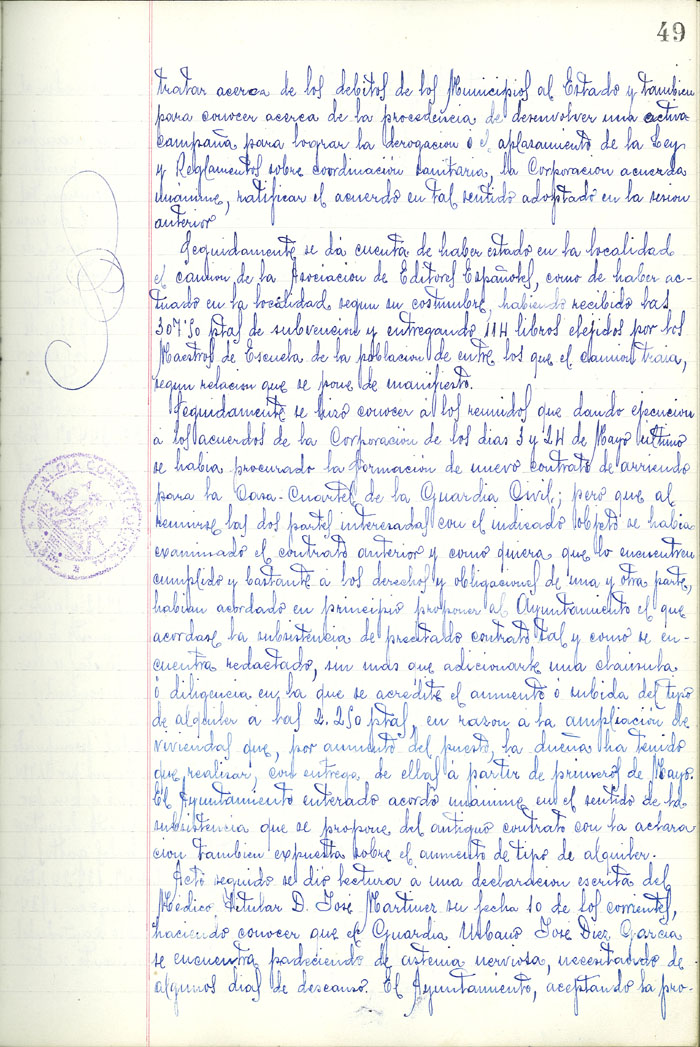 49
tratar acerca de los debitos de los Municipios al Estado y tambien
para conocer acerca de la procedencia de desenvolver una activa
campaña para lograr la derogacion ó el aplazamiento de la Ley
y Reglamentos sobre coordinación sanitaria, la Corporacion acuerda
unánime, ratificar el acuerdo en tal sentido adoptado en la sesion
anterior
Seguidamente se dá cuenta de haber estado en la localidad
el camion de la Asociacion de Editores Españoles, como de haber ac-
tuado en la localidad segun su costumbre, habiendo recibido las
307'50 ptas de subvencion y entregando 114 libros elejidos por los
Maestros de Escuela de la poblacion de entre los que el camion traia,
segun relacion que se pone de manifiesto.
Seguidamente se hizo conocer a los reunidos que dando ejecucion
á los acuerdos de la Corporacion de los dias 3 y 24 de Mayo ultimo
se habia procurado la formacion de nuevo contrato de arriendo
para la Casa-Cuartel de la Guardia Civil; pero que al
reunirse las dos partes interesadas con el indicado objeto se habia
examinado el contrato anterior y como quiera que lo encuentren
cumplido y bastante á los derechos y obligaciones de una y otra parte,
habian acordado en principio proponer al Ayuntamiento el que
acordase la subsistencia de precitado contrato tal y como se en-
cuentra redactado, sin mas que adicionarle una clausula
ó diligencia en la que se acredite el aumento ó subida del tipo
de alquiler á las 2.250 ptas, en razon á la ampliacion de
viviendas que, por aumento del puesto, la dueña ha tenido
que realizar, con entrega de ellas á partir de primeros de Mayo.
El Ayuntamiento enterado acordó unánime en el sentido de la
subsistencia que se propone del antiguo contrato con la aclara
cion tambien expuesta sobre el aumento de tipo de alquiler.
Acto seguido se dió lectura á una declaracion escrita del
Médico titular D. José Martinez su fecha 10 de los corrientes,
haciendo conocer que el Guardia Urbano José Diez Garcia
se encuentra padeciendo de astenia nerviosa, necesitando de
algunos dias de descanso. El Ayuntamiento, aceptando la pro-